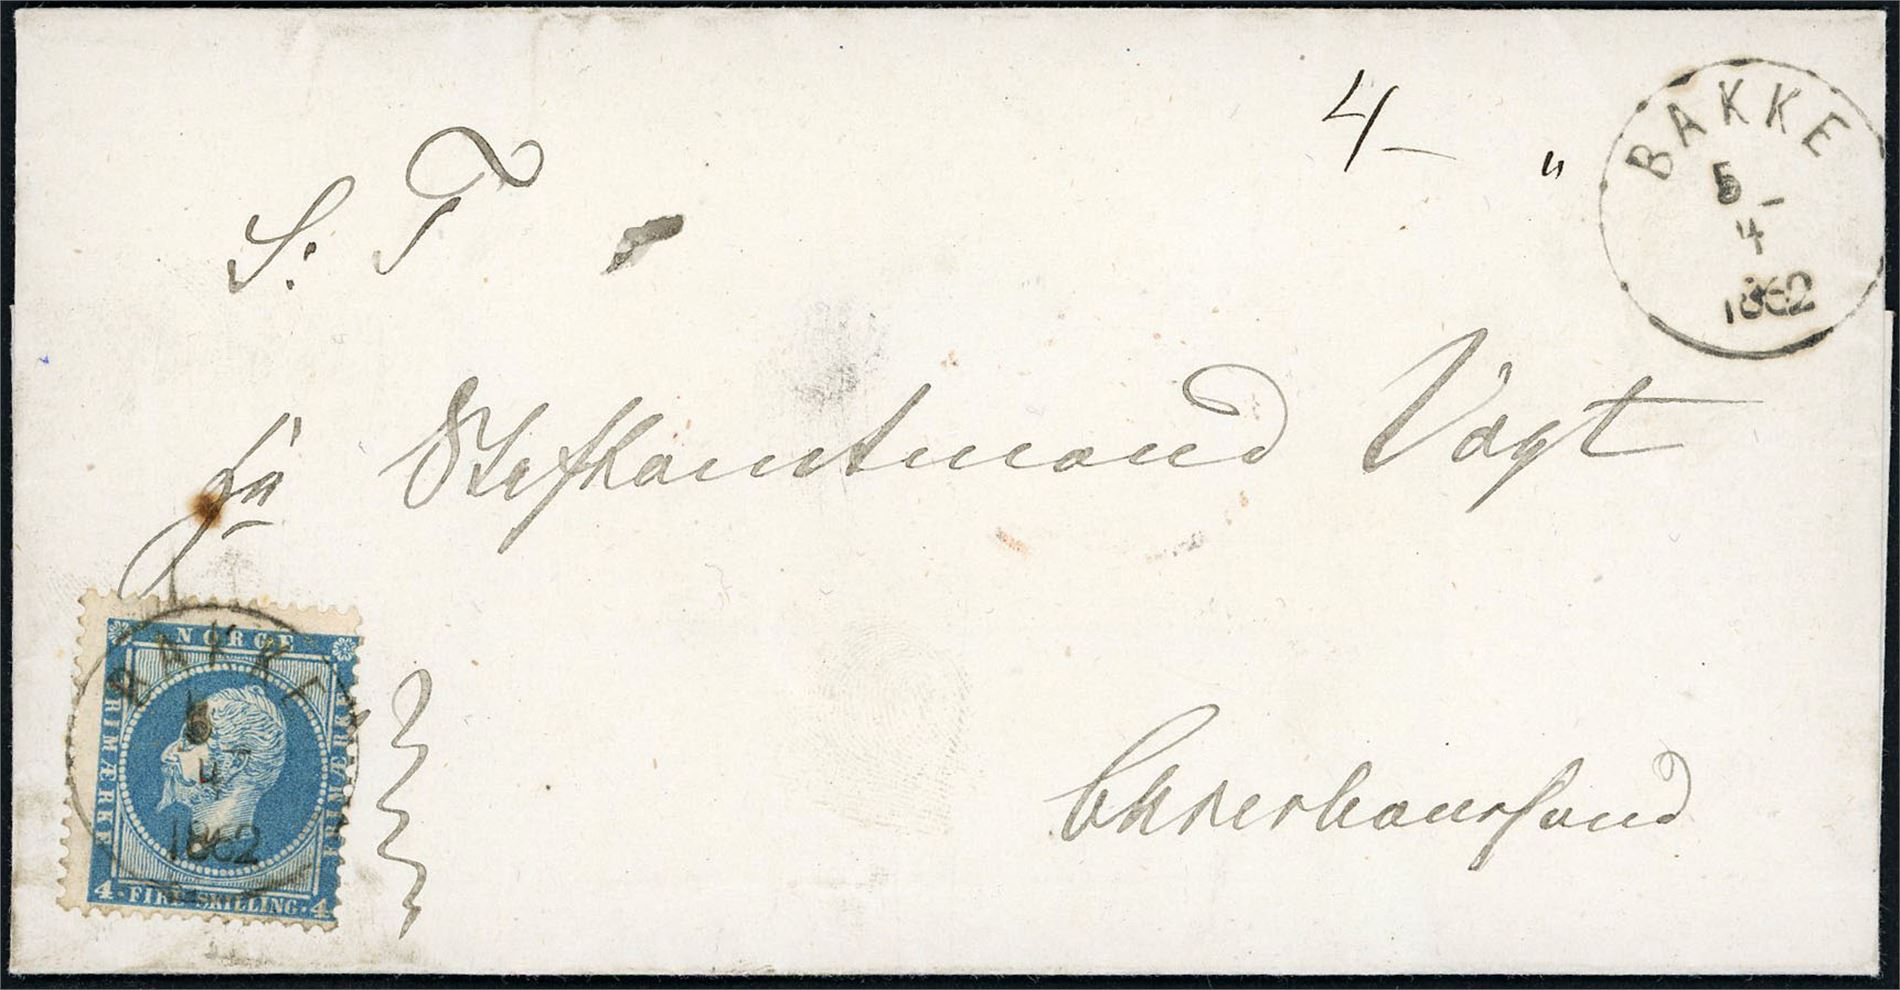 4 — "
BAKKE
5 –
4
1862
S: T
Hr Stiftamtmand Vogt
Christianssand
NORGE
FRIMÆRKE
FRIMÆRKE
4 · FIRE SKILLING · 4
BAKKE
5
4
1862